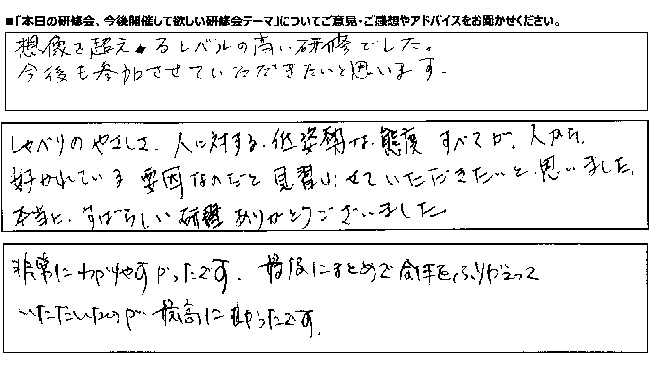 ■「本日の研修会、今後開催して欲しい研修会テーマ」についてご意見・ご感想やアドバイスをお聞かせください。
想像を超えるレベルの高い研修でした。
今後も参加させていただきたいと思います。
しゃべりのやさしさ、人に対する低姿勢な態度すべてが、人から
好かれている要因なのだと見習わせていただきたいと思いました。
本当に、すばらしい研修ありがとうございました。
非常にわかりやすかったです。最後にまとめで全体をふりかえって
いただいたのが最高に良かったです。